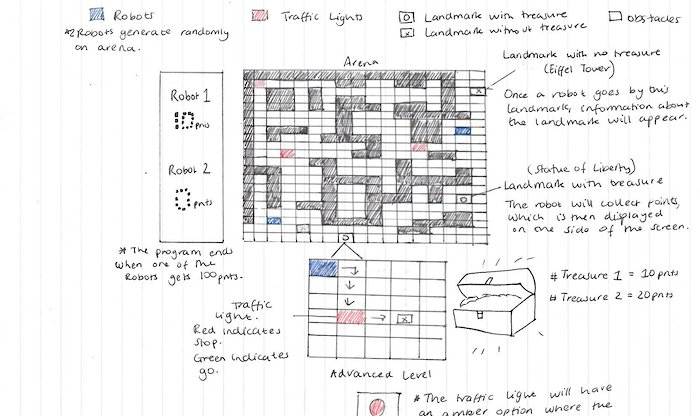 Robots
*2 Robots generate randomly
on arena.
Traffic Lights
O Landmark with treasure
X Landmark without treasure
obstacles
Arena
Robot 1
10 pnts
Robot 2
0 pnts
* The program ends
when one of the
Robots gets 100pnts.
X
O
X
O
Landmark with no treasure
(Eiffel Tower)
Once a robot goes by this
landmark, information about
the landmark will appear.
(Statue of Liberty)
Landmark with treasure
The robot will collect points,
which is then displayed
on the side of the screen.
# Treasure 1 = 10 pnts
# Treasure 2 = 20 pnts
Traffic
light.
Red indicates
stop.
Green indicates
go.
X
Advanced Level
* The traffic light will have
an amber option where the